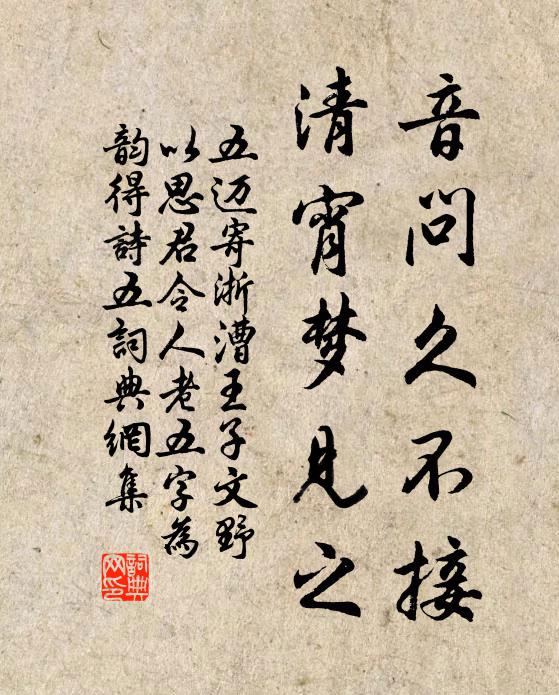 音问久不接
清宵梦见之
五迈寄浙漕王子文野
以思君令人老五字為
韵得詩五詞典網集
詞典
网印